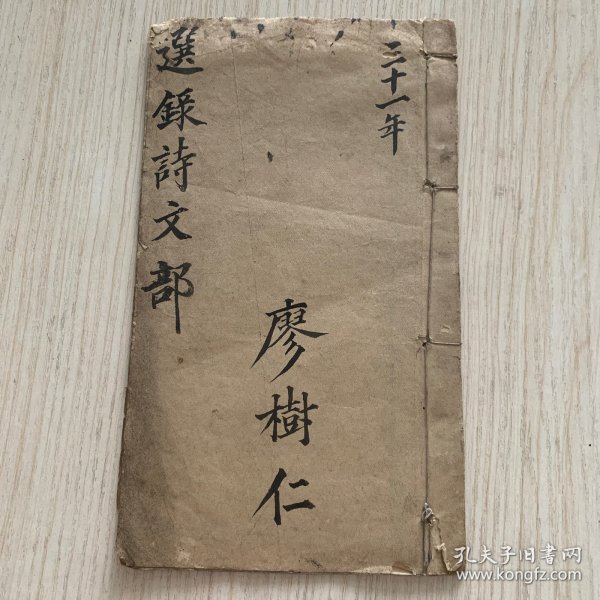 三十一年
廖樹仁
選錄詩文部
孔夫子旧書网
www.kongfz.com